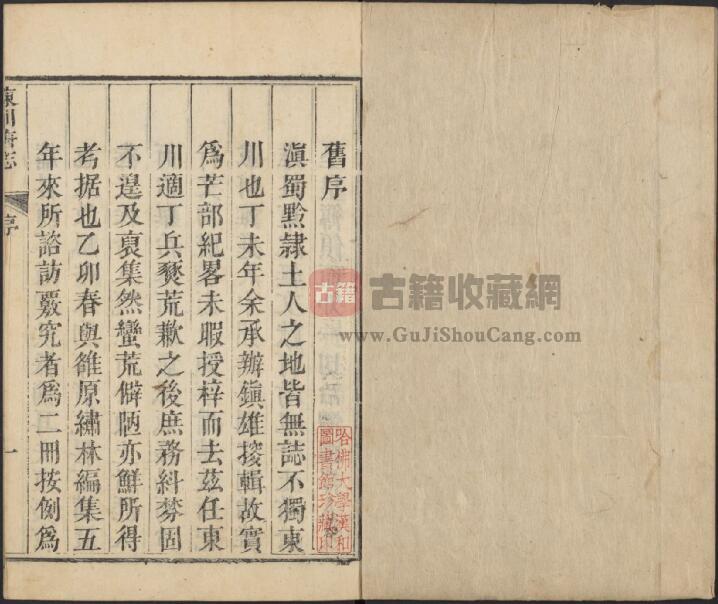 舊序
滇蜀黔隷土人之地皆無誌不獨東
川也丁未年余承辦鎮雄捘輯故實
爲芒部紀畧未暇授梓而去茲任東
川適丁兵燹荒歉之後庶務紏棼固
不遑及裒集然蠻荒僻陋亦鮮所得
考据也乙卯春與雒原繡林編集五
年來所諮訪覈究者爲二冊按例爲
東川府志
序
一
哈佛大學漢和
圖書館珍藏印
古籍
古籍收藏網
www.GuJiShouCang.com